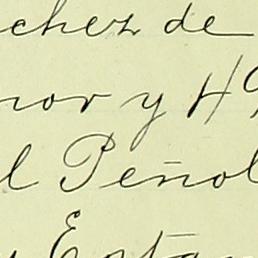 chez de
nor y H
l Peñol
y Esta